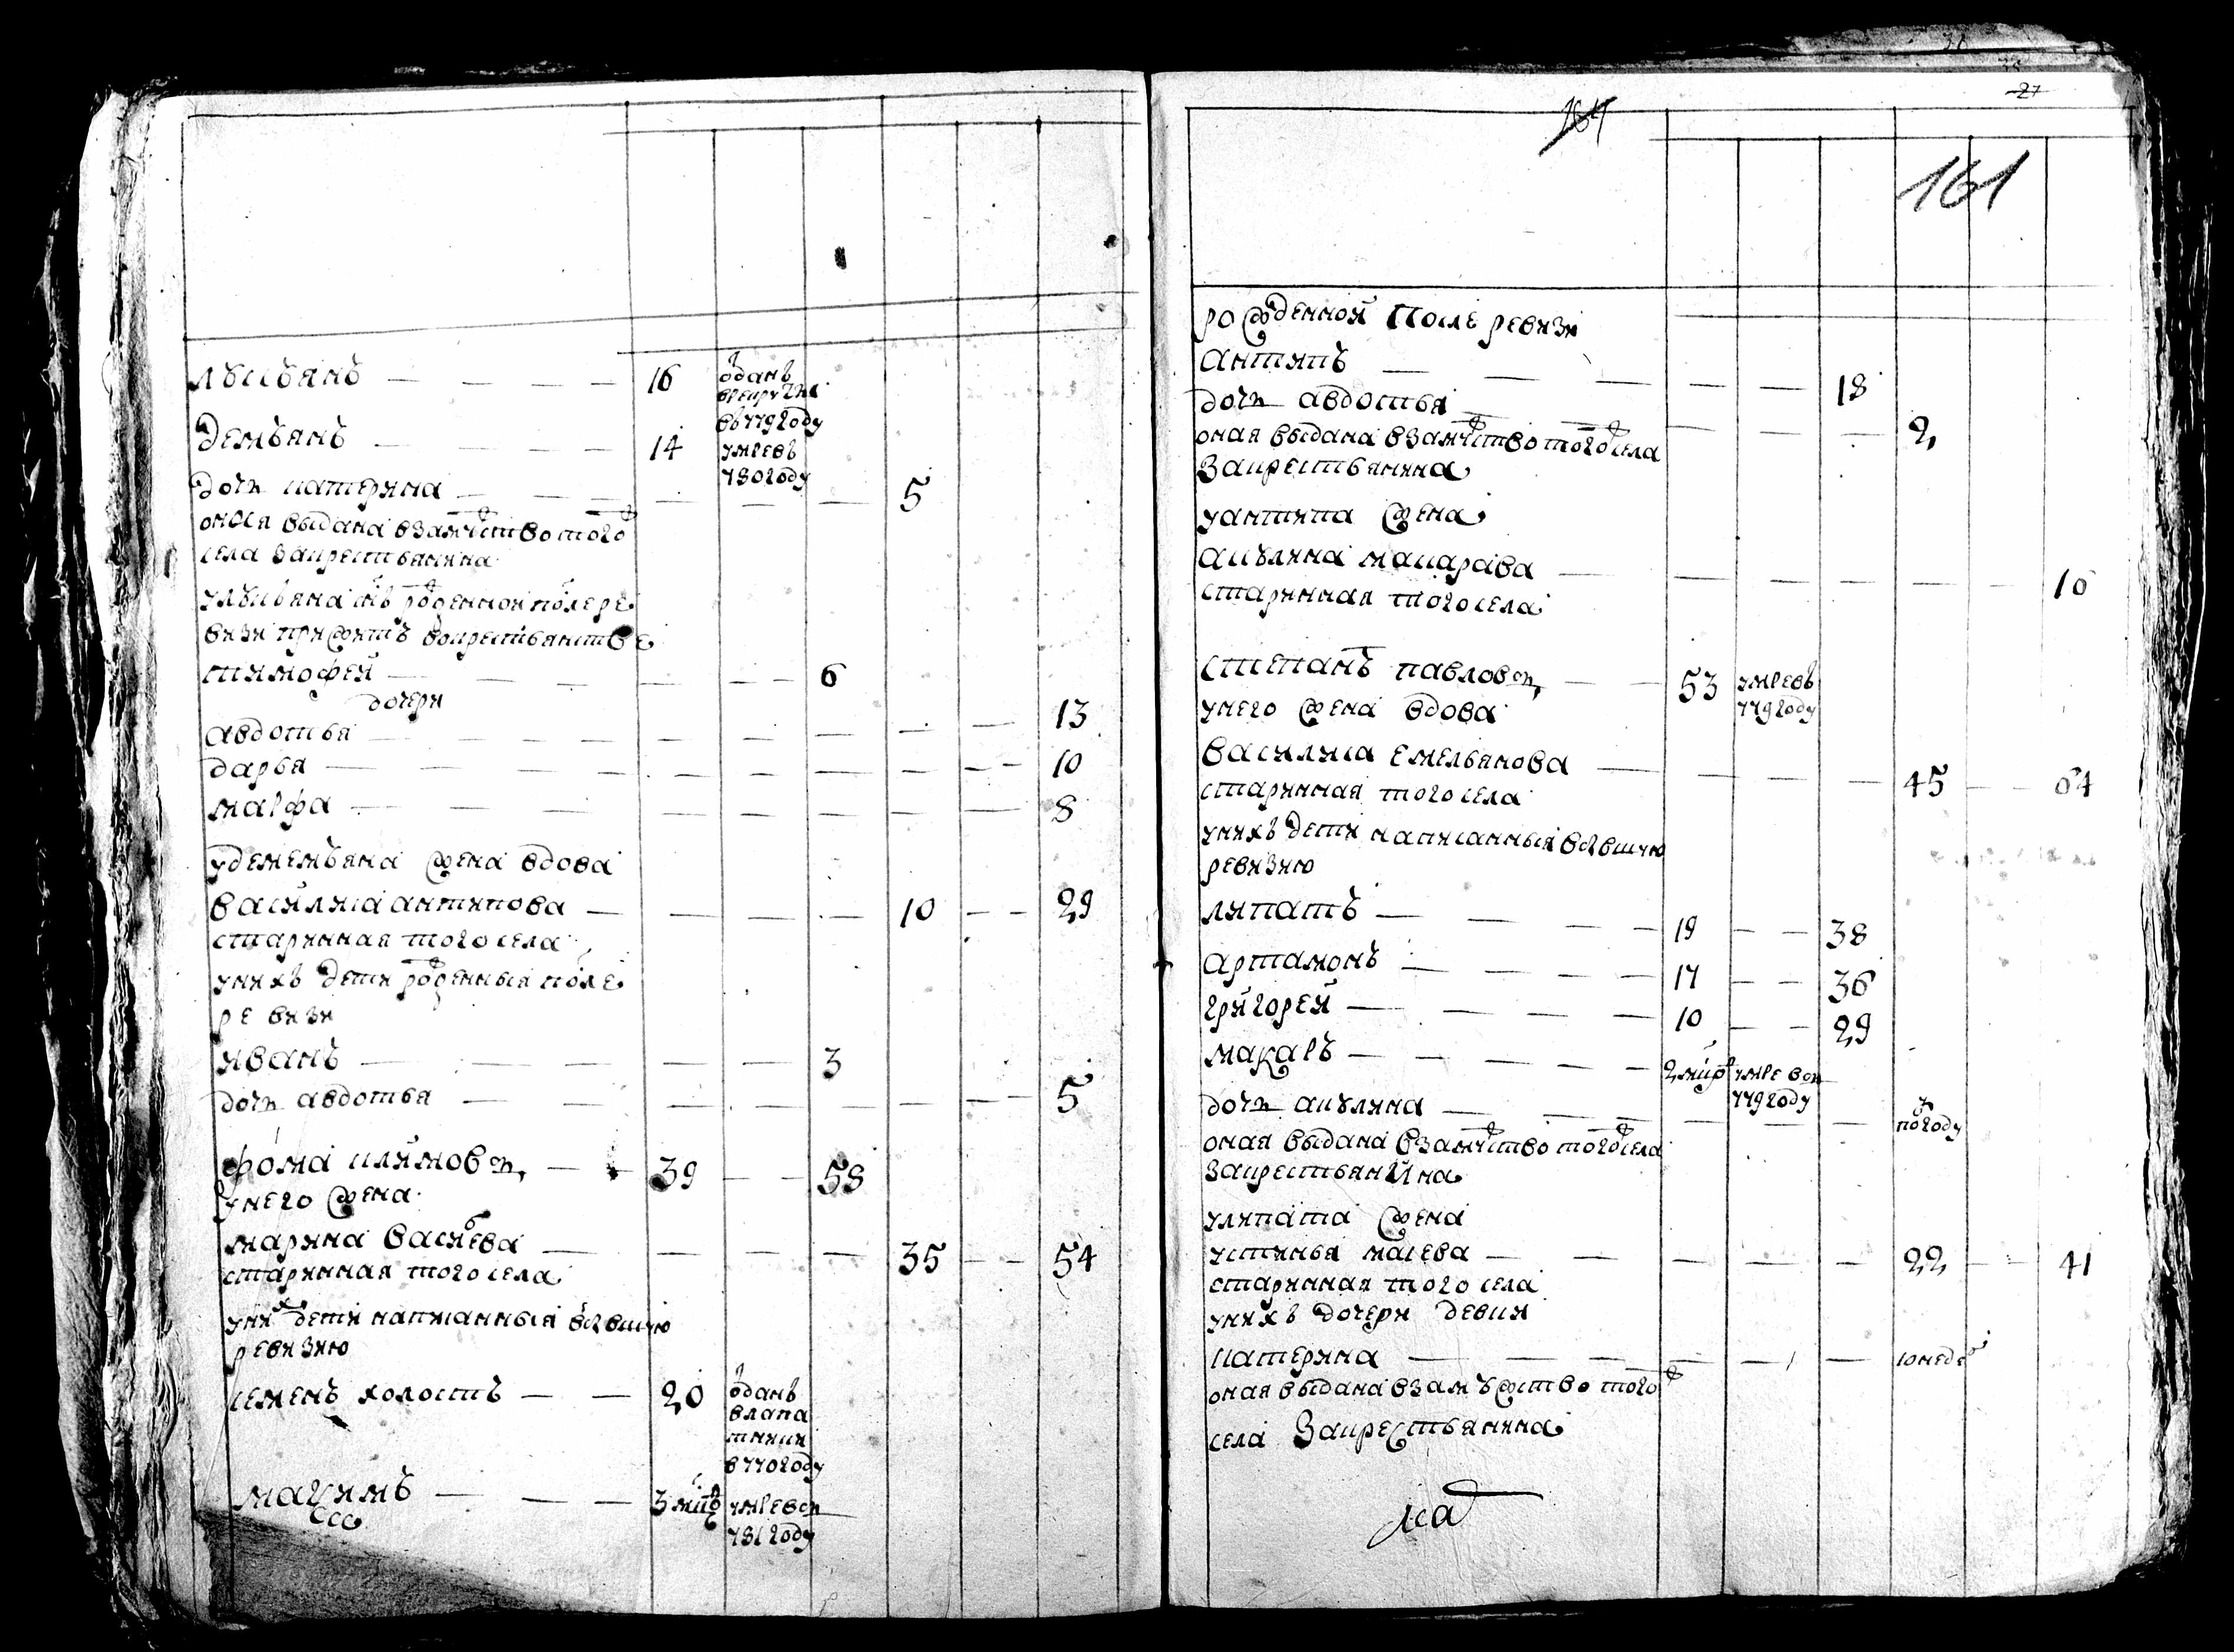 лукьянъ — — — — 16 отданъ
врекруты
в 779 году
демьянъ — — — — 14 умре въ
780 году
дочь катерина — — — — — — 5
оная выдана взамужство того
села за крестьянина
у лукьяна сынъ рожденной после ре
визи прижитъ вокрестьянстве
тимофей — — — — — — 6
дочери
авдотья — — — — — — — — 13
дарья — — — — — — — — 10
марфа — — — — — — — — 8
у деменьяна жена вдова
василиса антипова — — — — 10 — — 29
старинная того села
у них дети рожденныя после
ревизи
иванъ — — — — — — 3
дочь авдотья — — — — — — — 5
фома климовъ сынъ — — 39 — — 58
у него жена
марина васильева — — — — 35 — — 54
старинная того села
у них дети написанныя в бывшую
ревизию
семенъ холостъ — — 20 отданъ
в 770 году
— — — 3 умре въ
781 году
164
27
161
рожденной После ревизи
антипъ — — — — — 18
дочь авдотья — — — — 2
оная выдана взамужство того села
За крестьянина
у антипа жена
акулина макарова — — — — — — 16
старинная того села
степанъ павловъ сынъ — — 53 умре въ
779 году
у него жена вдова
василиса емельянова — — — — 45 — — 64
старинная того села
у них дети написанныя в бывшую
ревизию
липатъ — — — 19 — — 38
артамонъ — — — 17 — — 36
григорей — — — — 10 — — 29
макаръ — — — — 2 умре въ
779 году
дочь акулина — — — — — —
полгоду
оная выдана взамужство того села
За крестьянина
у липата жена
устинья — — — — — 22 — — 41
старинная того села
у них дочери девки
катерина — — — — — — 10 недель
оная выдана взамужство того
села За крестьянина